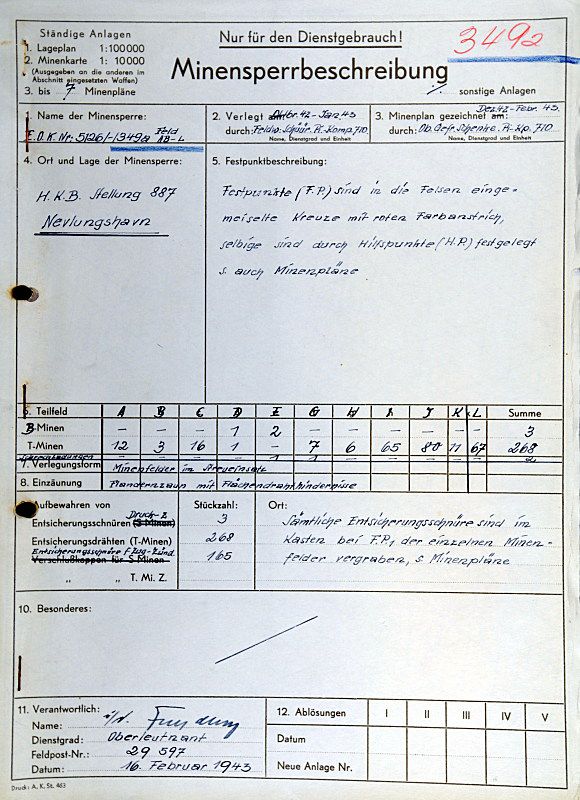 Ständige Anlagen
1. Lageplan 1:100000
2. Minenkarte 1: 10000
(Ausgegeben an die anderen im
Abschnitt eingesetzten Waffen)
3. bis 7 Minenpläne
Nur für den Dienstgebrauch!
3492
Minensperrbeschreibung
./. sonstige Anlagen
1. Name der Minensperre:
F.O.K. Nr. 5126/-1349a Feld AB-L
2. Verlegt am: Okt br. 42 - Jan. 43
durch: Feldw. Schüür. Pi-Komp. 710
Name, Dienstgrad und Einheit
3. Minenplan gezeichnet am: Dez. 42 - Febr. 43.
durch: Ob. Gefr. Schenke. Pi-Kp. 710
Name, Dienstgrad und Einheit
4. Ort und Lage der Minensperre:
H.K.B. Stellung 887
Nevlungshavn
5. Festpunktbeschreibung:
Festpunkte (F.P.) sind in die Felsen einge-
meiselte Kreuze mit roten Farbanstrich,
selbige sind durch Hilfspunkte (H.P.) festgelegt
s. auch Minenpläne
6. Teilfeld A B C D E G H J K L Summe
S-Minen – – – 1 2 – – – – – – 3
T-Minen 12 3 16 1 – 7 6 65 80 11 67 268
7. Verlegungsform Minenfelder im Streueinsatz
8. Einzäunung Flandernzaun mit Flächendrahthindernisse
Aufbewahren von Stückzahl: Ort:
Druck-Z
Entsicherungsschnüren (S Minen) 3
Entsicherungsdrähten (T-Minen) 268
Entsicherungsschnüre f. Zug-Zünd.
Verschlußkappen für S-Minen 165
„ „ T. Mi. Z.
Sämtliche Entsicherungsschnüre sind im
Kasten bei F.P., der einzelnen Minen-
felder vergraben, s. Minenpläne
10. Besonderes:
11. Verantwortlich:
Name: i/V.
Dienstgrad: Oberleutnant
Feldpost-Nr.: 29 597
Datum: 16. Februar 1943
12. Ablösungen I II III IV V
Datum
Neue Anlage Nr.
Druck: A. K. St. 463